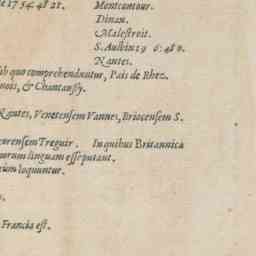 e 17 54. 48 21. Montcontour.
Dinan.
Malestroit.
S. Aulbin 19 6: 48 0.
Nantes.
ub quo comprehenduntur, Pais de Rhez.
nois, & Chantansy.
Nantes, Venetensem Vannes, Briocensem S.
corensem Treguir. In quibus Britannica
uorum linguam esse putant.
cum loquuntur.
Francia est.